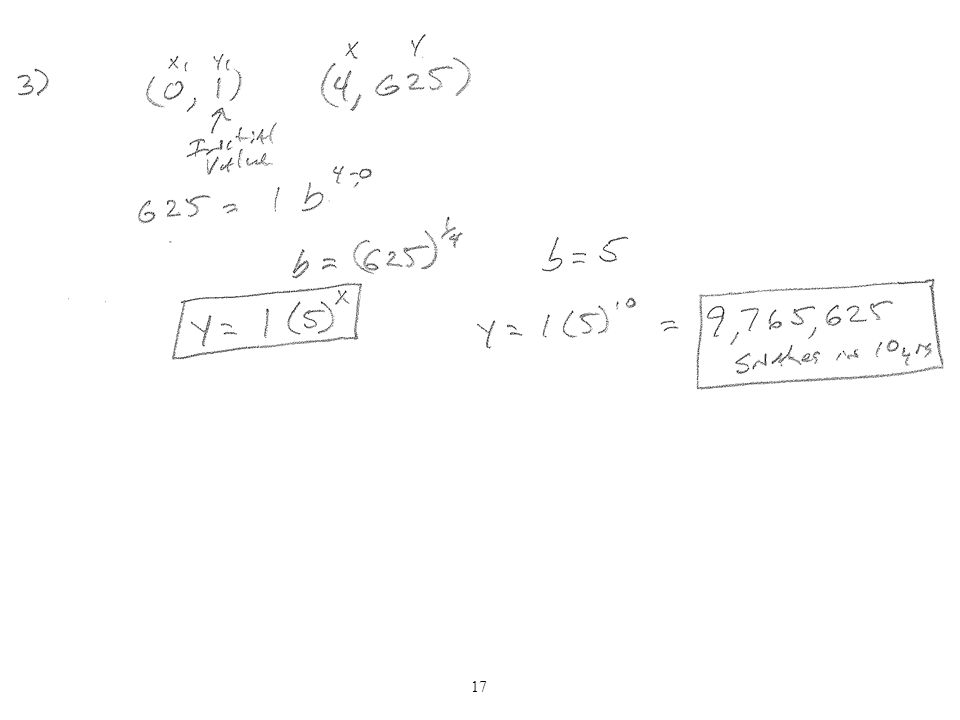 X₁ Y₁ X Y
3) (0, 1) (4, 625)
↑
Initial
Value
625 = 1 b⁴⁻⁰
b = (625)^¼ b = 5
Y = 1 (5)ˣ Y = 1 (5)¹⁰ = 9,765,625
Snakes in 10 yrs
17